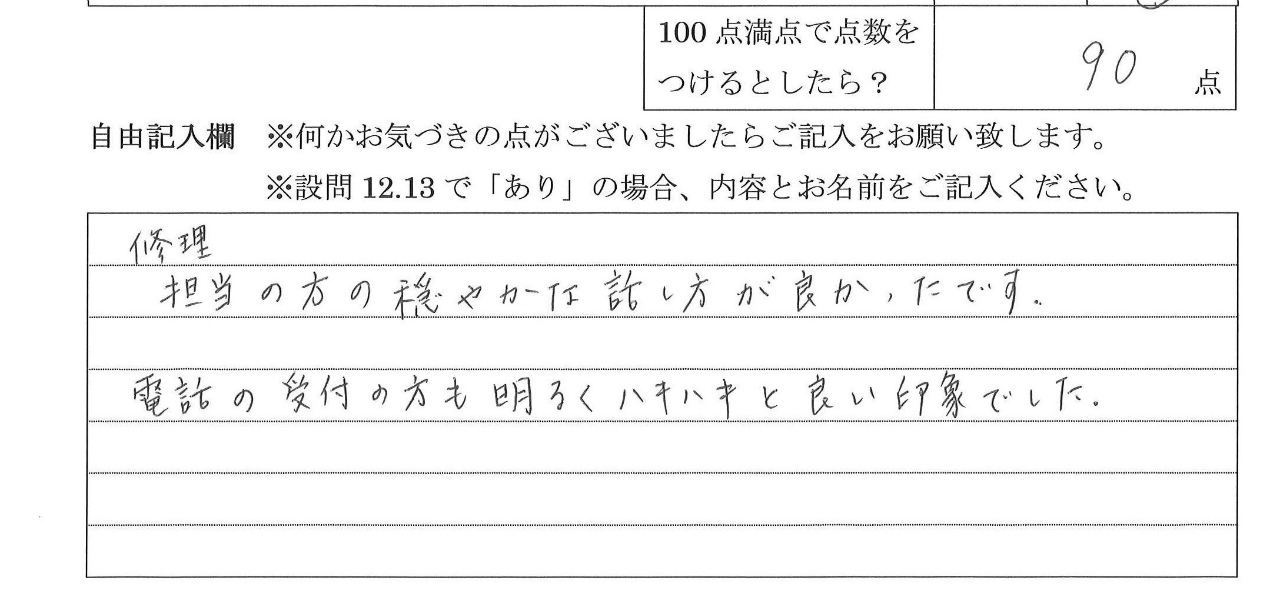 100 点満点で点数を
つけるとしたら？
90 点
自由記入欄 ※何かお気づきの点がございましたらご記入をお願い致します。
※設問 12.13 で「あり」の場合、内容とお名前をご記入ください。
修理
担当の方の穏やかな話し方が良かったです.
電話の受付の方も明るくハキハキと良い印象でした.